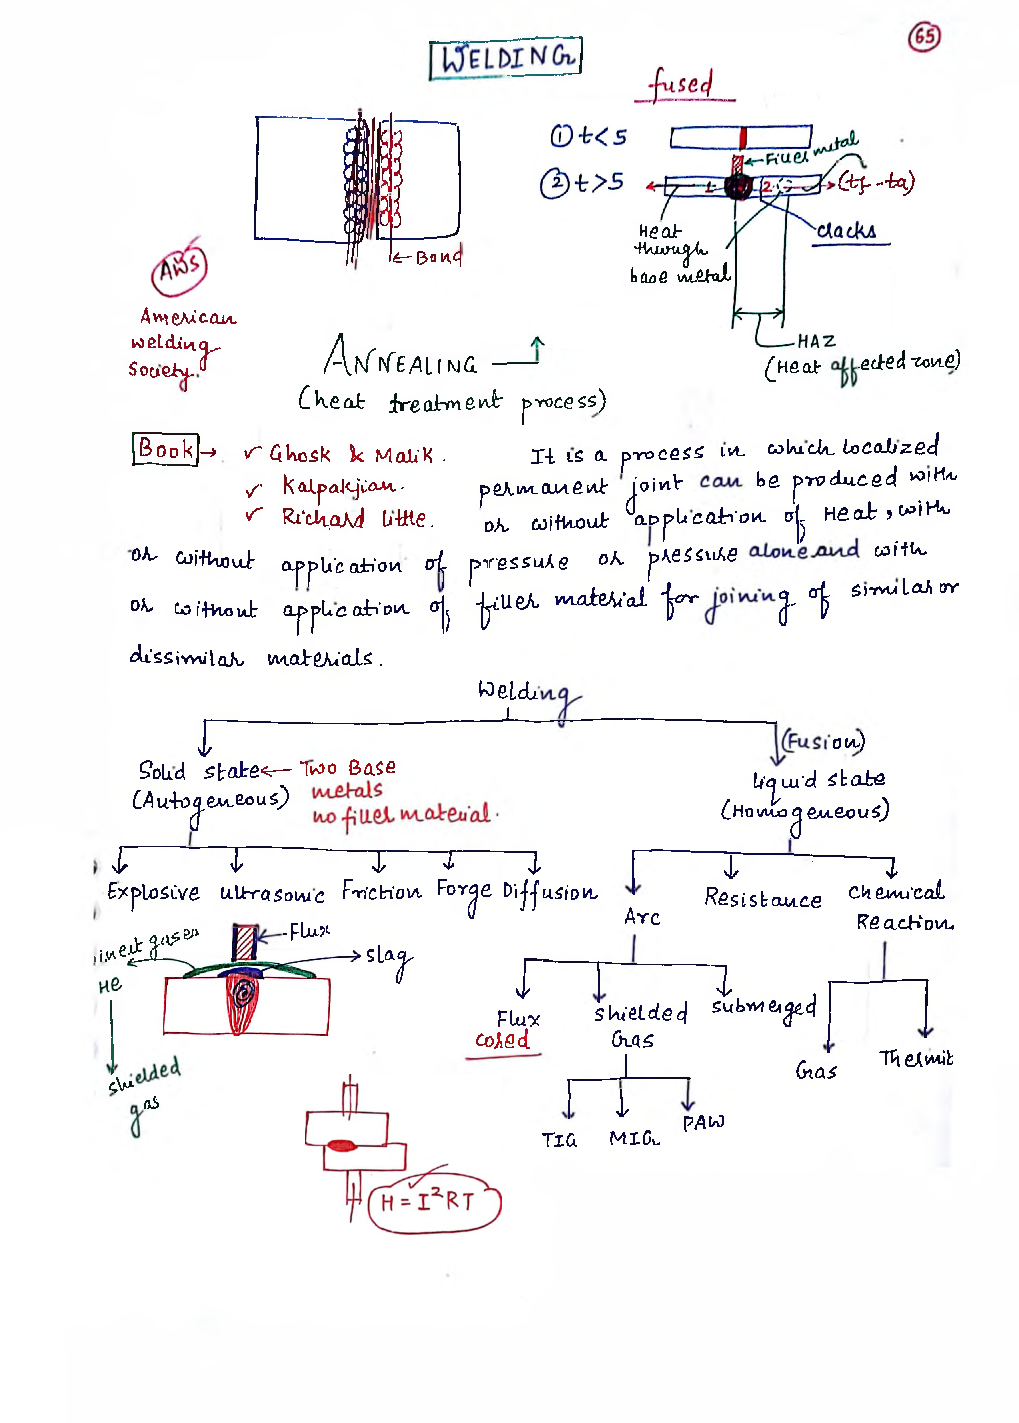 65
WELDING
fused
① t<5
← Filler metal
② t>5
1
2
(tf - ta)
Heat
through
base metal
cracks
← Bond
AWS
American
welding
Society.
HAZ
(Heat affected zone)
ANNEALING
(heat treatment process)
Book → ✓ Ghosk & Malik.
✓ Kalpakjian.
✓ Richard little.
It is a process in which localized
permanent joint can be produced with
or without application of Heat, with
or without application of pressure or pressure alone and with
or without application of filler material for joining of similar or
dissimilar materials.
Welding
(Fusion)
Solid state ← Two Base
(Autogeneous) metals
no filler material.
Liquid state
(Homogeneous)
Explosive ultrasonic Friction Forge Diffusion
Arc Resistance Chemical
Reaction
inert gases
← Flux
→ slag
He
shielded
gas
Flux
cored
shielded
Gas
submerged
Gas
Thermit
TIG MIG PAW
H = I²RT